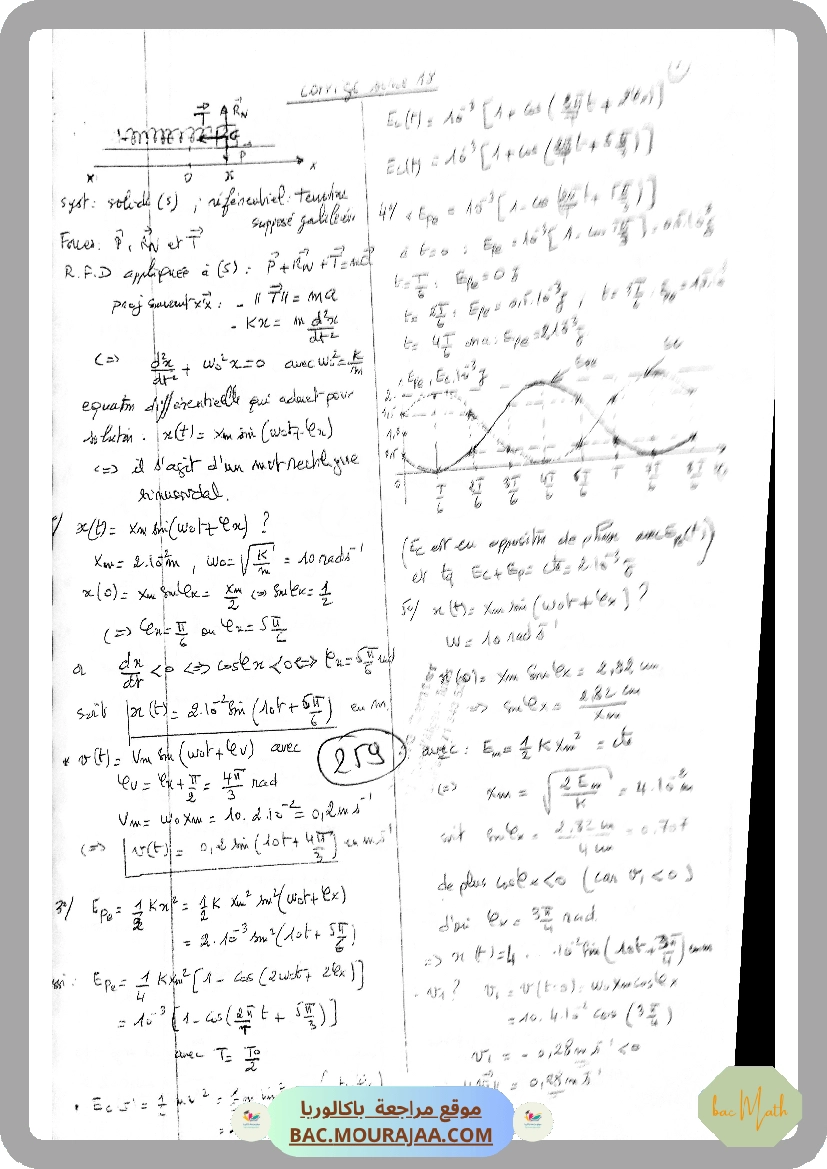 Corrigé série 18
1
T⃗ R⃗N
G
P⃗
x' 0 x x
syst: solide (S) ; référentiel: terrestre
supposé galiléen
Forces: P⃗, R⃗N et T⃗
R.F.D appliquée à (S): P⃗ + R⃗N + T⃗ = ma⃗
proj suivant x'x: - ||T⃗|| = ma
- Kx = m d²x/dt²
(=> d²x/dt² + ω0²x = 0 avec ω0² = K/m
equation différentielle qui admet pour
solution. x(t) = xm sin(ω0t + φx)
<=> il s'agit d'un mvt rectiligne
sinusoidal.
2°/ x(t) = xm sin(ω0t + φx) ?
xm = 2.10⁻²m, ω0 = √(K/m) = 10 rad s⁻¹
x(0) = xm sinφx = xm/2 <=> sinφx = 1/2
(=> φx = π/6 ou φx = 5π/6
or dx/dt < 0 <=> cosφx < 0 <=> φx = 5π/6 rad
soit x(t) = 2.10⁻² sin(10t + 5π/6) en m
* v(t) = Vm sin(ω0t + φv) avec
φv = φx + π/2 = 4π/3 rad
Vm = ω0 xm = 10. 2.10⁻² = 0,2 m s⁻¹
(=> v(t) = 0,2 sin(10t + 4π/3) en m.s⁻¹
3°/ Epe = 1/2 Kx² = 1/2 K xm² sin²(ω0t + φx)
= 2.10⁻³ sin²(10t + 5π/6)
Epe = 1/4 K xm² [1 - cos(2ω0t + 2φx)]
= 10⁻³ [1 - cos(2π/T t + 5π/3)]
avec T = T0/2
259
Ec(t) = 10⁻³ [1 + cos(2π/T t + 2φx)]
Ec(t) = 10⁻³ [1 + cos(2π/T t + 5π/3)]
4°/ * Epe = 10⁻³ [1 - cos(2π/T t + 5π/3)]
à t=0 : Epe = 10⁻³ [1 - cos 5π/3] = 0,5.10⁻³J
t = T/6 : Epe = 0 J
t = 2T/6 : Epe = 0,5.10⁻³J ; t = 3T/6 : Epe = 1,5.10⁻³
t = 4T/6 ona : Epe = 2.10⁻³J
Epe, Ec.10⁻³J
Epe Ec
2
1,5
0,5
0 T/6 2T/6 3T/6 4T/6 5T/6 T 7T/6 8T/6
(Ec est en opposition de phase avec Epe(t)
et tq Ec + Ep = cte = 2.10⁻³J
5°/ x(t) = xm sin(ω0t + φx) ?
ω = 10 rad s⁻¹
x(0) = xm sinφx = 2,82 cm
=> sinφx = 2,82 cm / xm
avec : Em = 1/2 K xm² = cte
(=> xm = √(2Em/K) = 4.10⁻² m
soit sinφx = 2,82 cm / 4 cm = 0,707
de plus cosφx < 0 (car v1 < 0)
d'où φx = 3π/4 rad
=> x(t) = 4 . 10⁻² sin(10t + 3π/4)
. v1 ? v1 = v(t=0) = ω0 xm cosφx
= 10.4.10⁻² cos(3π/4)
v1 = - 0,28 m s⁻¹ < 0
= 0,28 m s⁻¹
موقع مراجعة باكالوريا
BAC.MOURAJAA.COM
bac Math